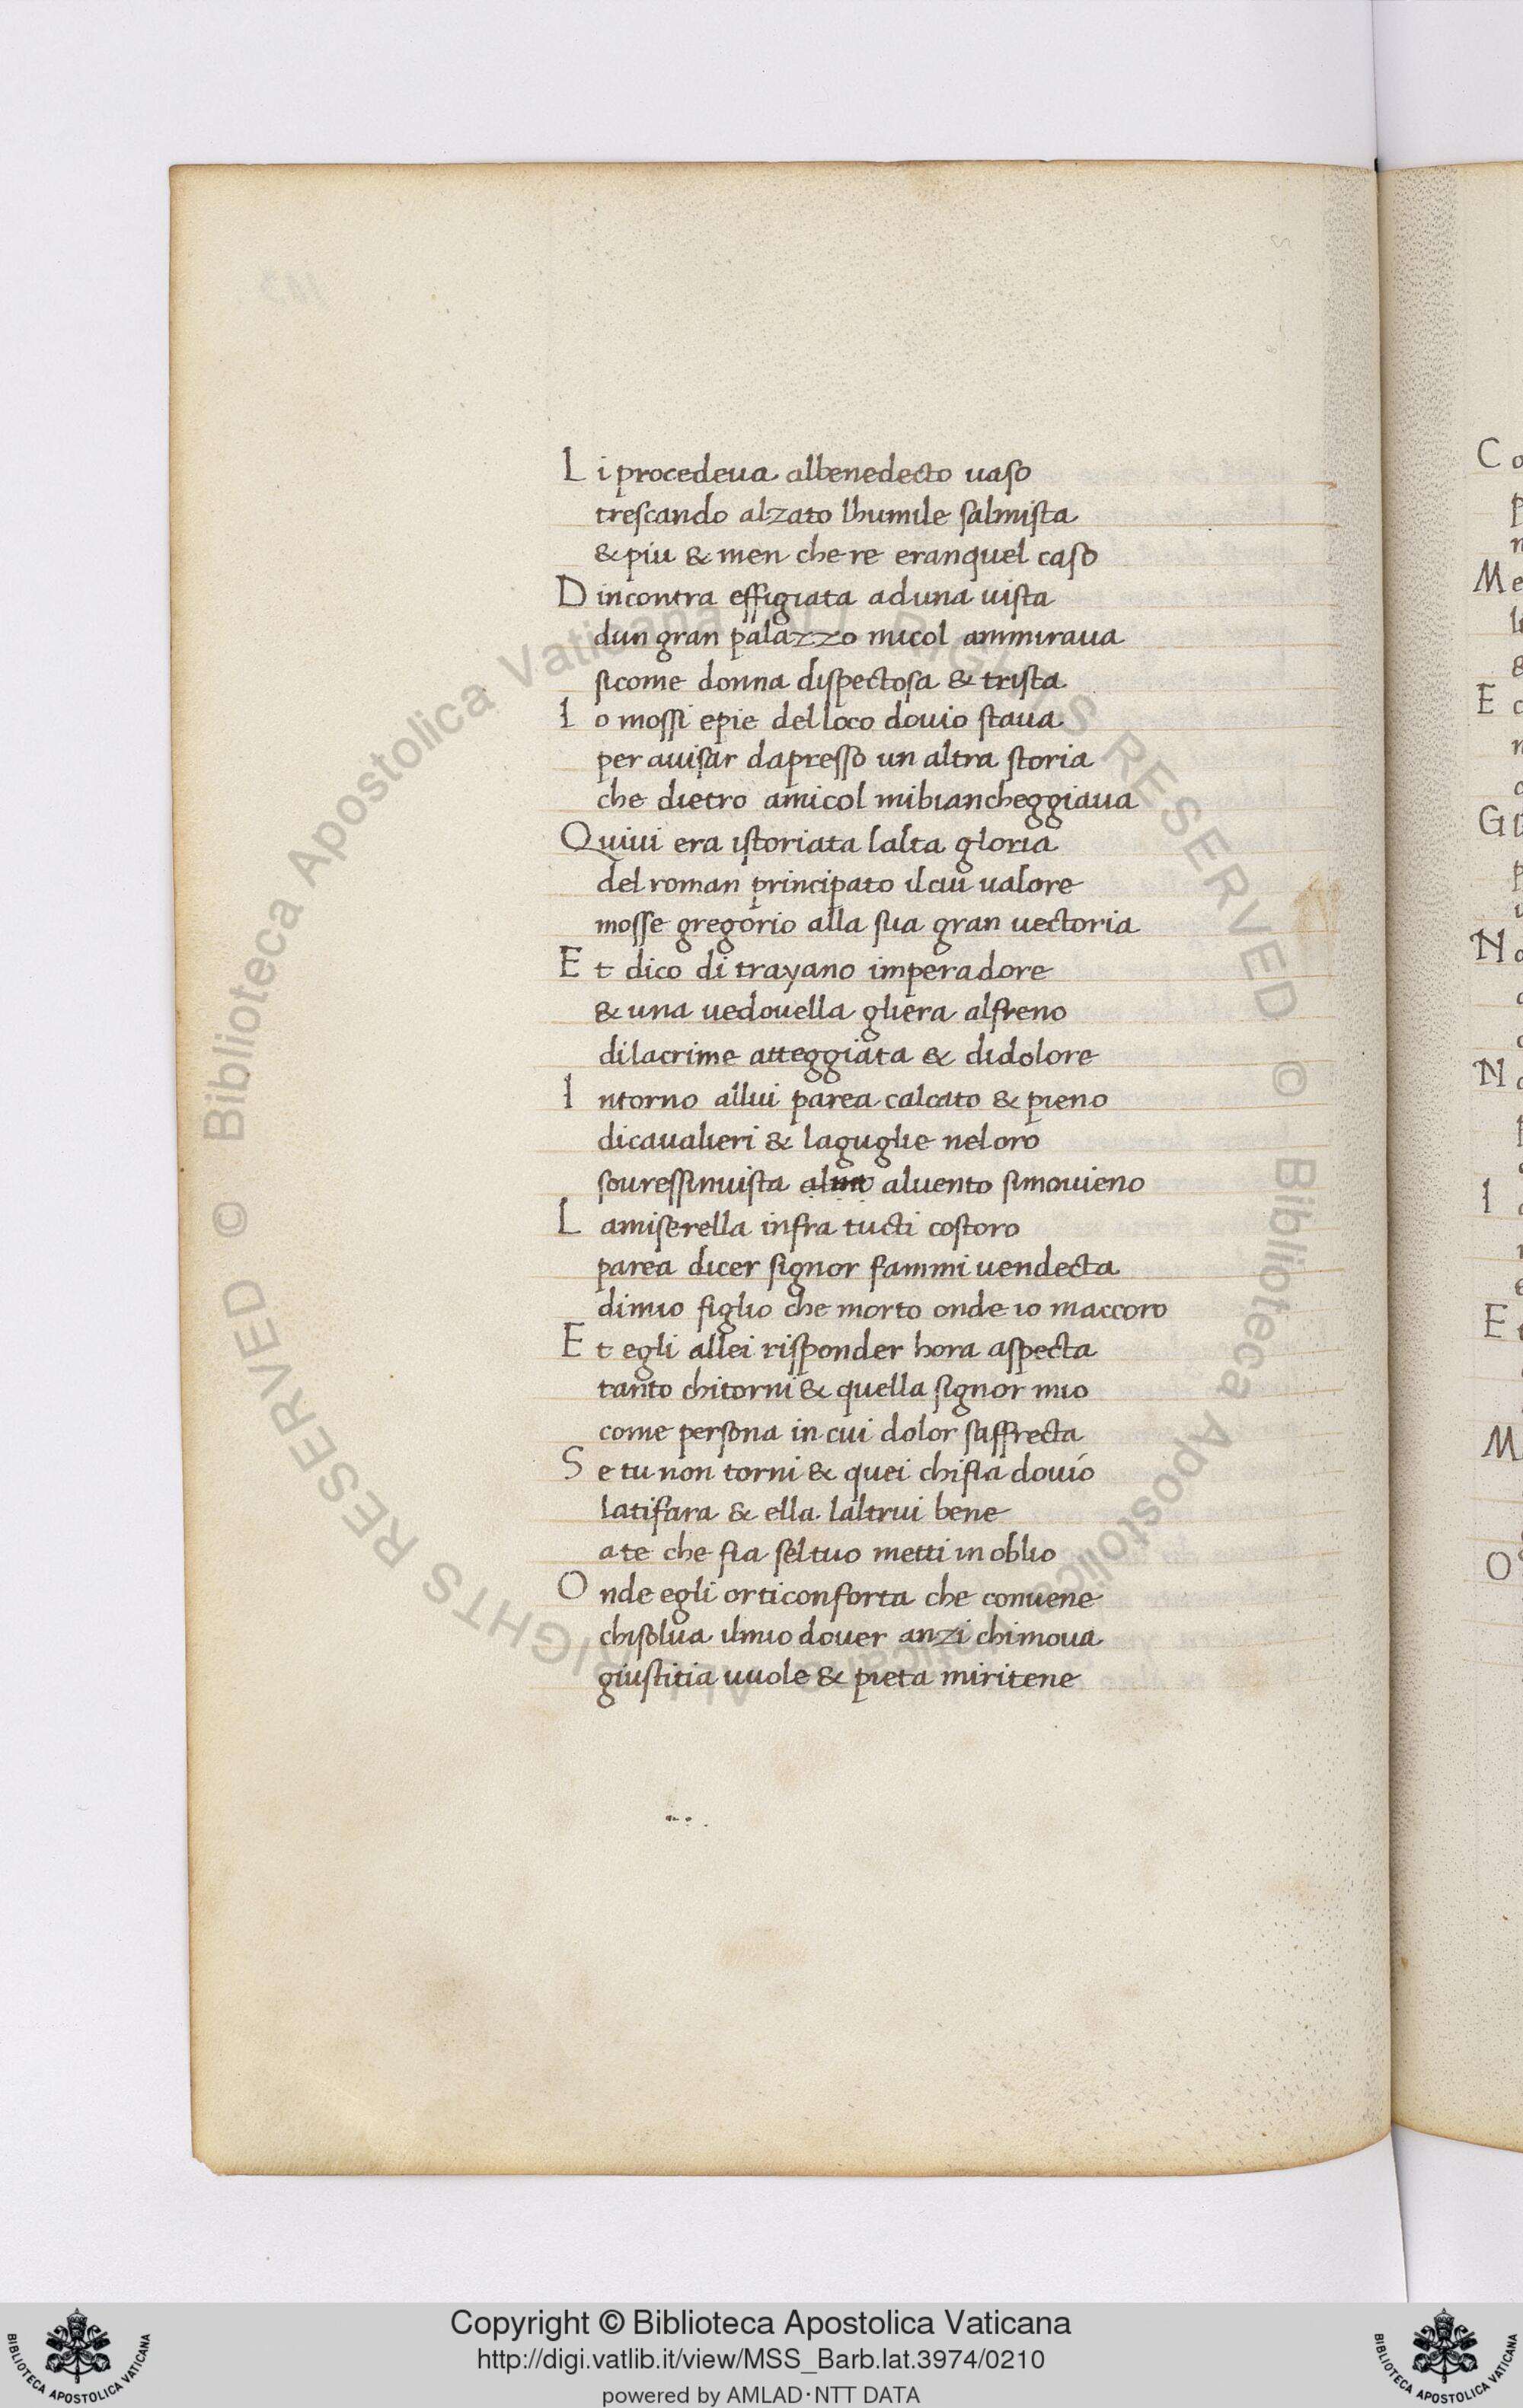 Li procedeua albenedecto uaso
trescando alzato lhumile salmista
& piu & men che re eranquel caso
Dincontra effigiata aduna uista
dun gran palazzo micol ammiraua
sicome donna dispectosa & trista
Io mossi epie delloco douio staua
per auisar dapresso un altra storia
che dietro amicol mibiancheggiaua
Quiui era istoriata lalta gloria
del roman principato ilcui ualore
mosse gregorio alla sua gran uectoria
Et dico di trayano imperadore
& una uedouella gliera alfreno
dilacrime atteggiata & didolore
Intorno allui parea calcato & pieno
dicaualieri & laguglie neloro
souressinuista aluento simouieno
Lamiserella infra tucti costoro
parea dicer signor fammi uendecta
dimio figlio che morto onde io maccoro
Et egli allei risponder hora aspecta
tanto chitorni & quella signor mio
come persona in cui dolor saffrecta
Se tu non torni & quei chifia douio
latifara & ella laltrui bene
ate che fia seltuo metti in oblio
Onde egli orticonforta che conuene
chisolua ilmio douer anzi chimoua
giustitia uuole & pieta miritene
Copyright © Biblioteca Apostolica Vaticana
http://digi.vatlib.it/view/MSS_Barb.lat.3974/0210
powered by AMLAD·NTT DATA